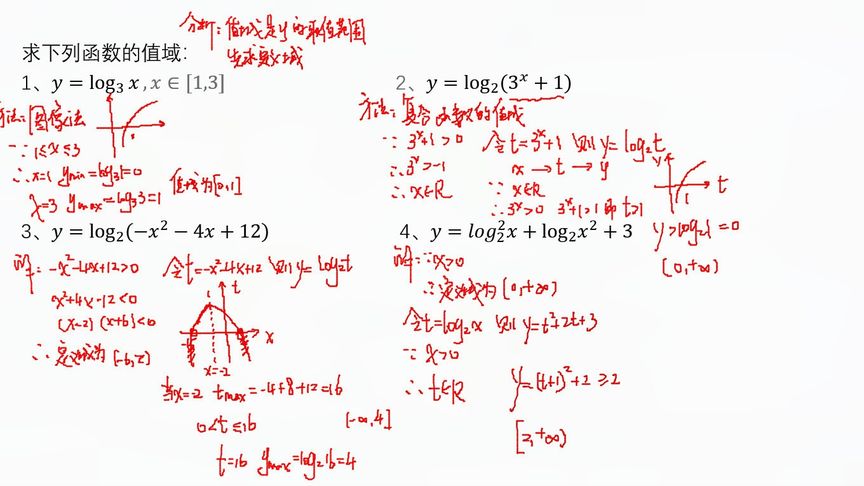 分析：值域是y的取值范围
先求定义域
求下列函数的值域：
1、y = log₃ x , x ∈ [1,3]
方法：图像法
∵ 1≤x≤3
∴ x=1 ymin=log₃1=0
x=3 ymax=log₃3=1
值域为[0,1]
2、y = log₂(3ˣ + 1)
方法：复合函数的值域
∵ 3ˣ+1>0 令t=3ˣ+1 则y=log₂t
∴ 3ˣ>-1 x→t→y
∴ x∈R ∵ x∈R
∴ 3ˣ>0 3ˣ+1>1 即t>1
y
t
1
y>log₂1=0
(0,+∞)
3、y = log₂(−x² − 4x + 12)
解：-x²-4x+12>0 令t=-x²-4x+12 则y=log₂t
x²+4x-12<0
(x-2)(x+6)<0
∴ 定义域为(-6,2)
t
x
x=-2
当x=-2 tmax=-4+8+12=16
0<t≤16 (-∞,4]
t=16 ymax=log₂16=4
4、y = log₂²x + log₂x² + 3
解：∵ x>0
∴ 定义域为(0,+∞)
令t=log₂x 则y=t²+2t+3
∵ x>0
∴ t∈R y=(t+1)²+2≥2
[2,+∞)